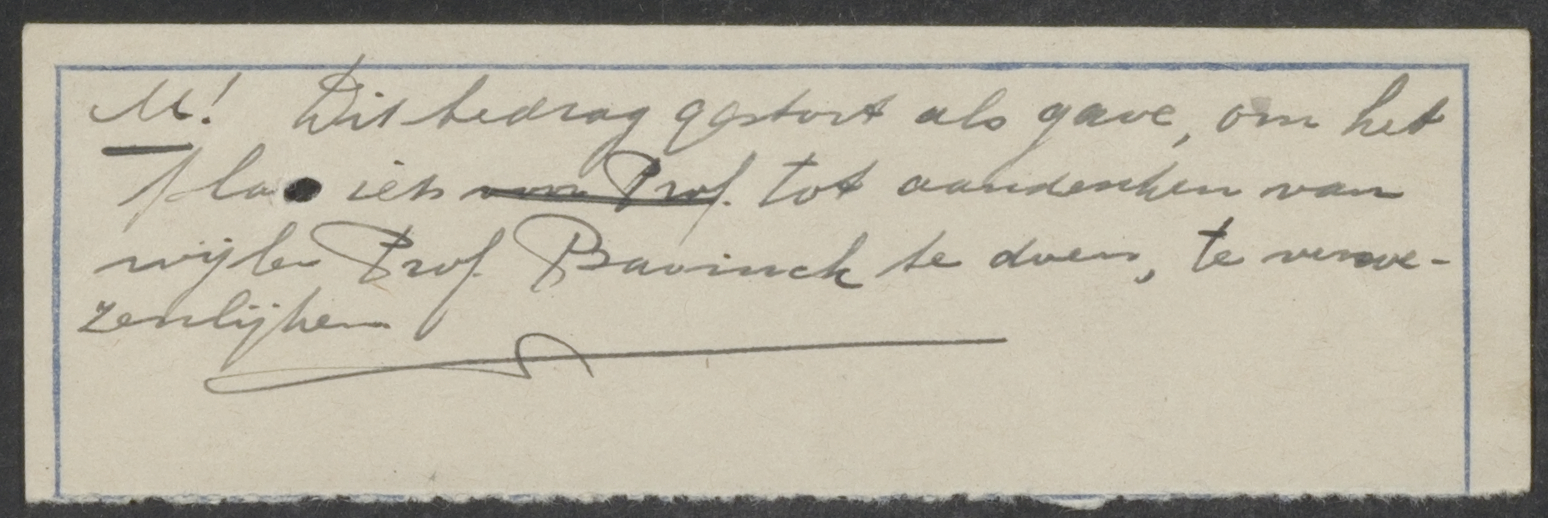 M! Dit bedrag gestort als gave, om het
plan iets voor Prof. tot aandenken van
wijlen Prof. Bavinck te doen, te verwe-
zenlijken